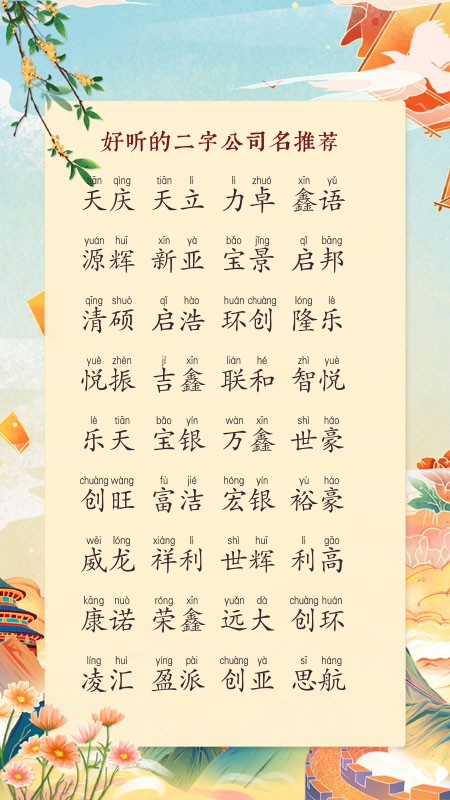 好听的二字公司名推荐
tiān qìng tiān lì lì zhuó xīn yǔ
天庆 天立 力卓 鑫语
yuán huī xīn yà bǎo jǐng qǐ bāng
源辉 新亚 宝景 启邦
qīng shuò qǐ hào huán chuàng lóng lè
清硕 启浩 环创 隆乐
yuè zhèn jí xīn lián hé zhì yuè
悦振 吉鑫 联和 智悦
lè tiān bǎo yín wàn xīn shì háo
乐天 宝银 万鑫 世豪
chuàng wàng fù jié hóng yín yù háo
创旺 富洁 宏银 裕豪
wēi lóng xiáng lì shì huī lì gāo
威龙 祥利 世辉 利高
kāng nuò róng xīn yuǎn dà chuàng huán
康诺 荣鑫 远大 创环
líng huì yíng pài chuàng yà sī háng
凌汇 盈派 创亚 思航